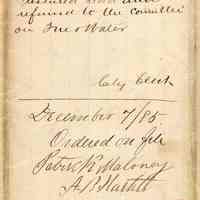 referred to the Committee
on Fire & Water
City Clerk
December 7/85
Ordered on file
Peter K Maloney
A B Martell